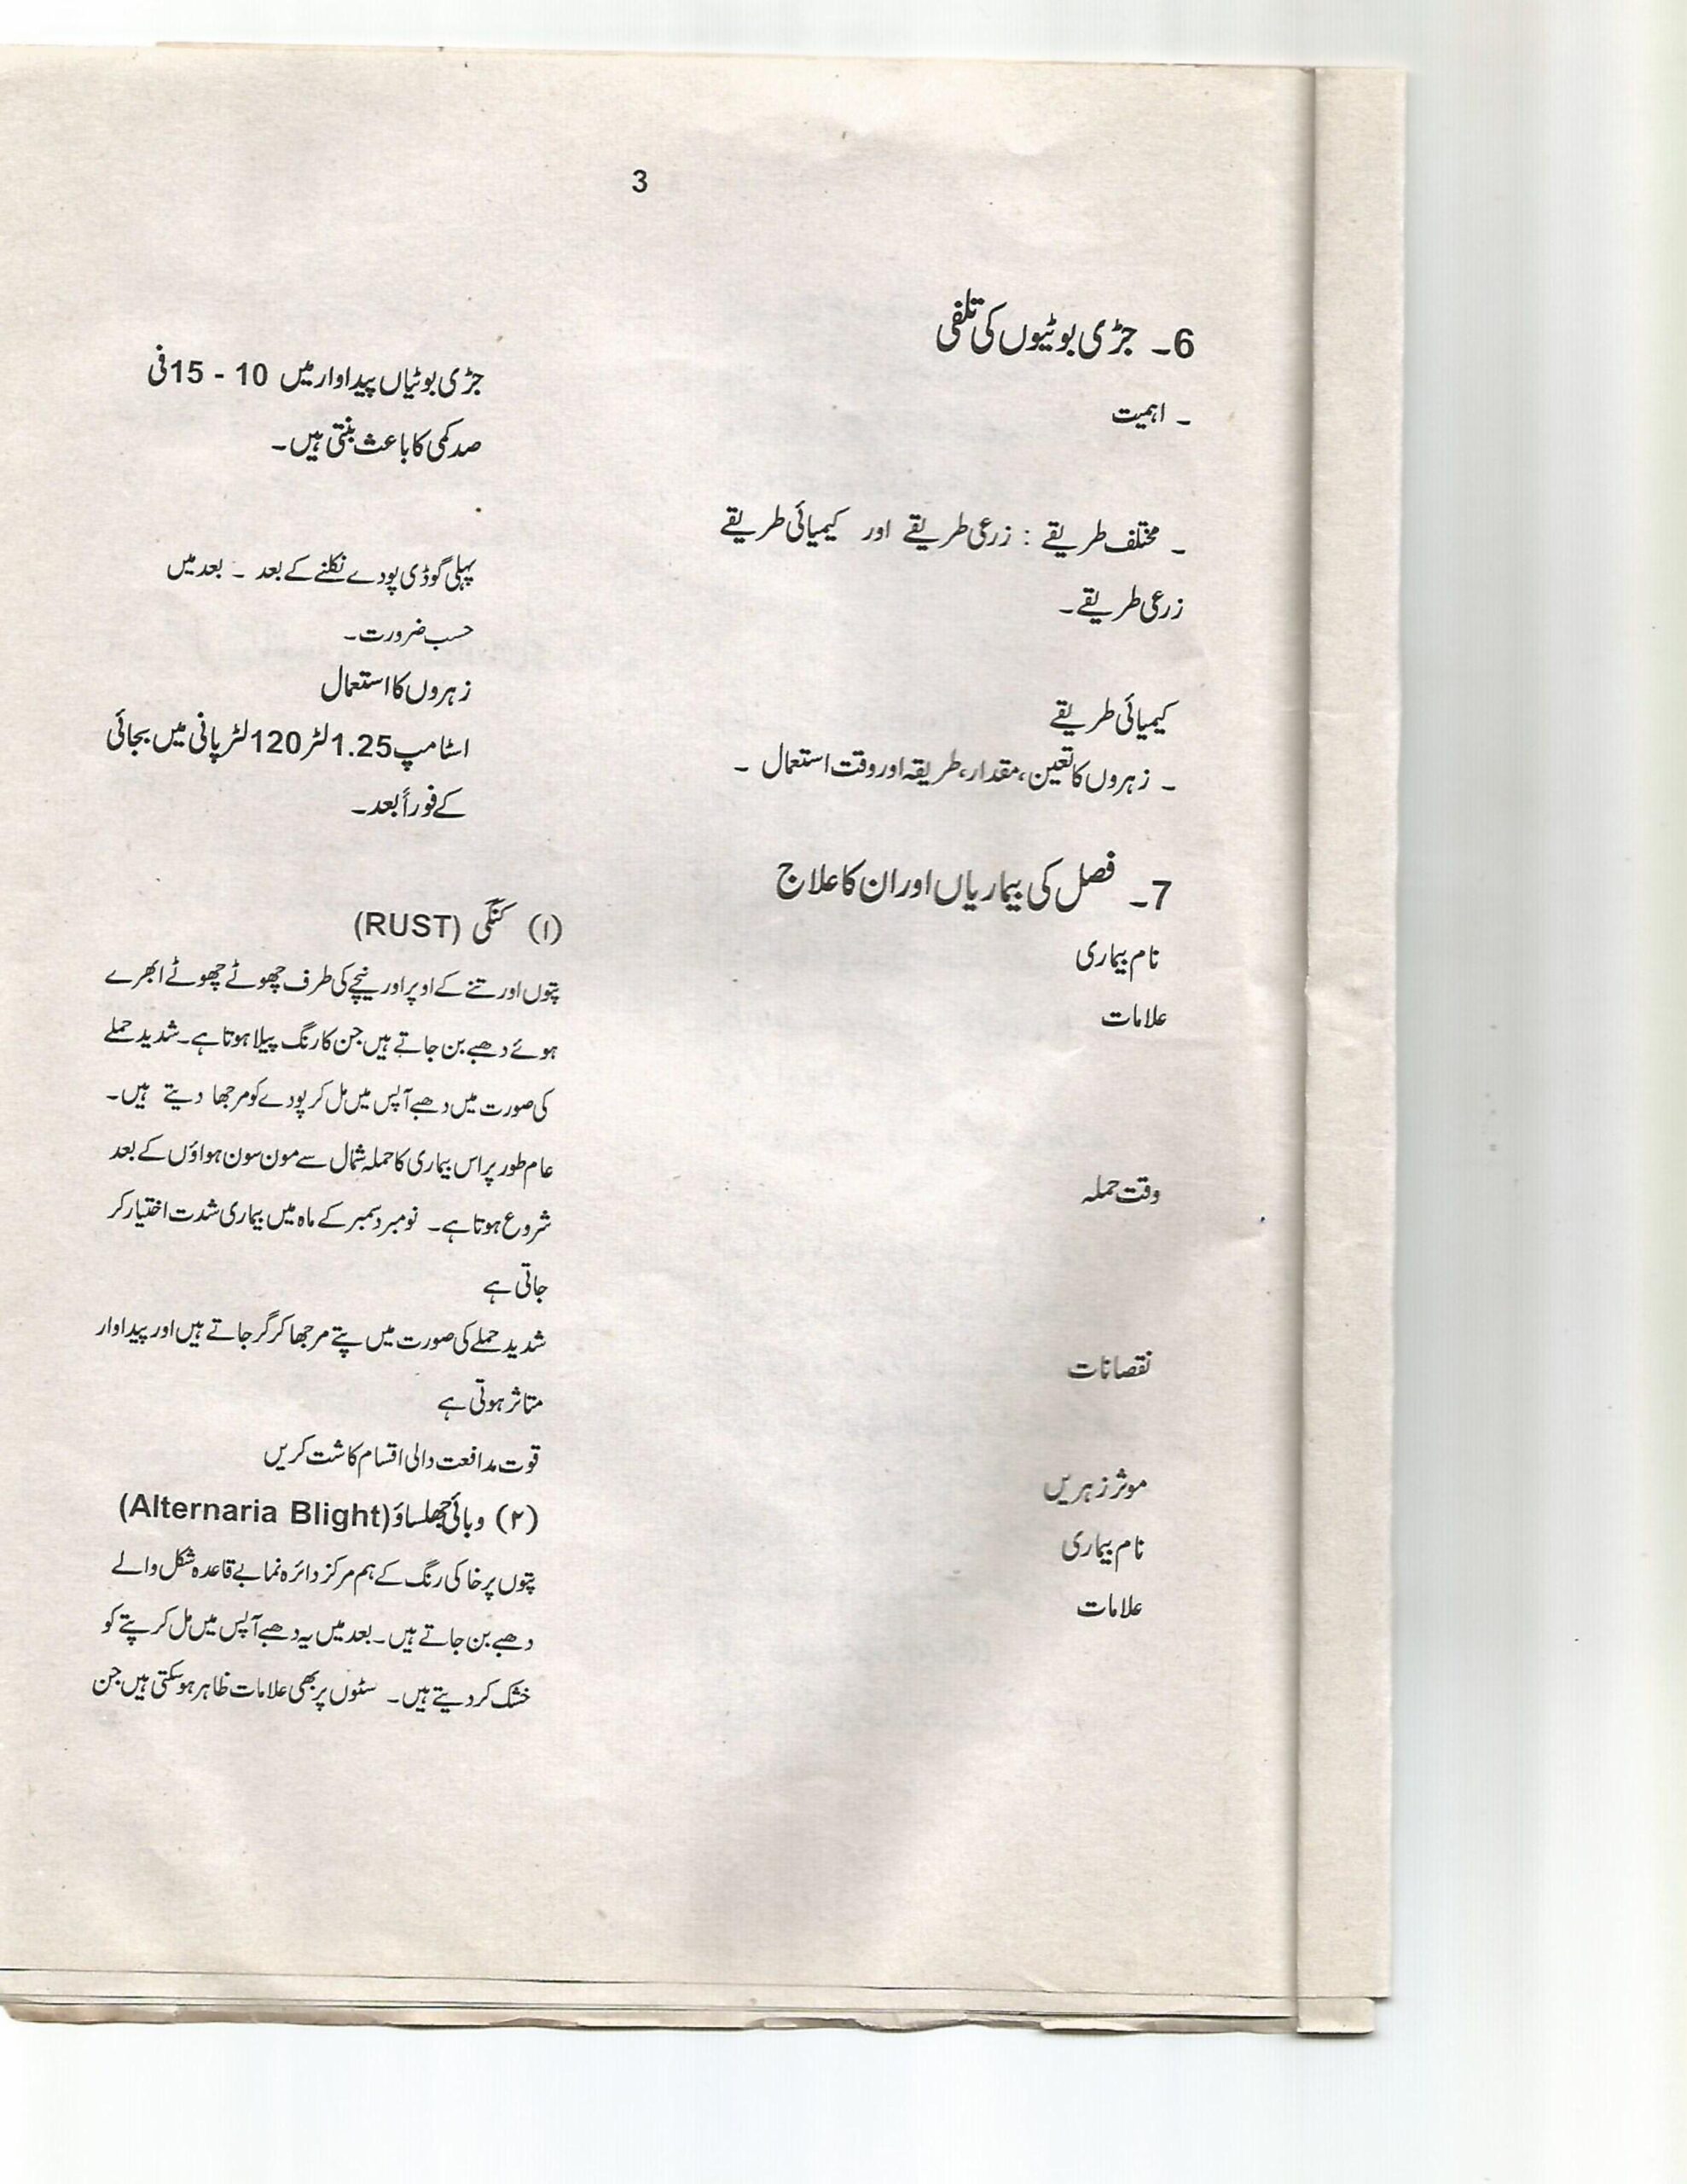 3
6۔ جڑی بوٹیوں کی تلفی
۔ اہمیت
جڑی بوٹیاں پیداوار میں 10 - 15 فی
صد کمی کا باعث بنتی ہیں۔
۔ مختلف طریقے : زرعی طریقے اور کیمیائی طریقے
زرعی طریقے۔
پہلی گوڈی پودے نکلنے کے بعد ۔ بعد میں
حسب ضرورت۔
کیمیائی طریقے
زہروں کا استعمال
۔ زہروں کا تعین، مقدار، طریقہ اور وقت استعمال ۔
اسٹامپ 1.25 لٹر 120 لٹر پانی میں بجائی
کے فوراً بعد۔
7۔ فصل کی بیماریاں اور ان کا علاج
نام بیماری
(۱) کنگی (RUST)
علامات
پتوں اور تنے کے اوپر اور نیچے کی طرف چھوٹے چھوٹے ابھرے
ہوئے دھبے بن جاتے ہیں جن کا رنگ پیلا ہوتا ہے۔ شدید حملے
کی صورت میں دھبے آپس میں مل کر پودے کو مرجھا دیتے ہیں۔
وقت حملہ
عام طور پر اس بیماری کا حملہ شمال سے مون سون ہواؤں کے بعد
شروع ہوتا ہے۔ نومبر دسمبر کے ماہ میں بیماری شدت اختیار کر
جاتی ہے
نقصانات
شدید حملے کی صورت میں پتے مرجھا کر گر جاتے ہیں اور پیداوار
متاثر ہوتی ہے
موثر زہریں
قوت مدافعت دالی اقسام کاشت کریں
نام بیماری
(۲) وبائی جھلساؤ (Alternaria Blight)
علامات
پتوں پر خاکی رنگ کے ہم مرکز دائرہ نما بے قاعدہ شکل والے
دھبے بن جاتے ہیں۔ بعد میں یہ دھبے آپس میں مل کر پتے کو
خشک کر دیتے ہیں۔ سٹوں پر بھی علامات ظاہر ہو سکتی ہیں جن